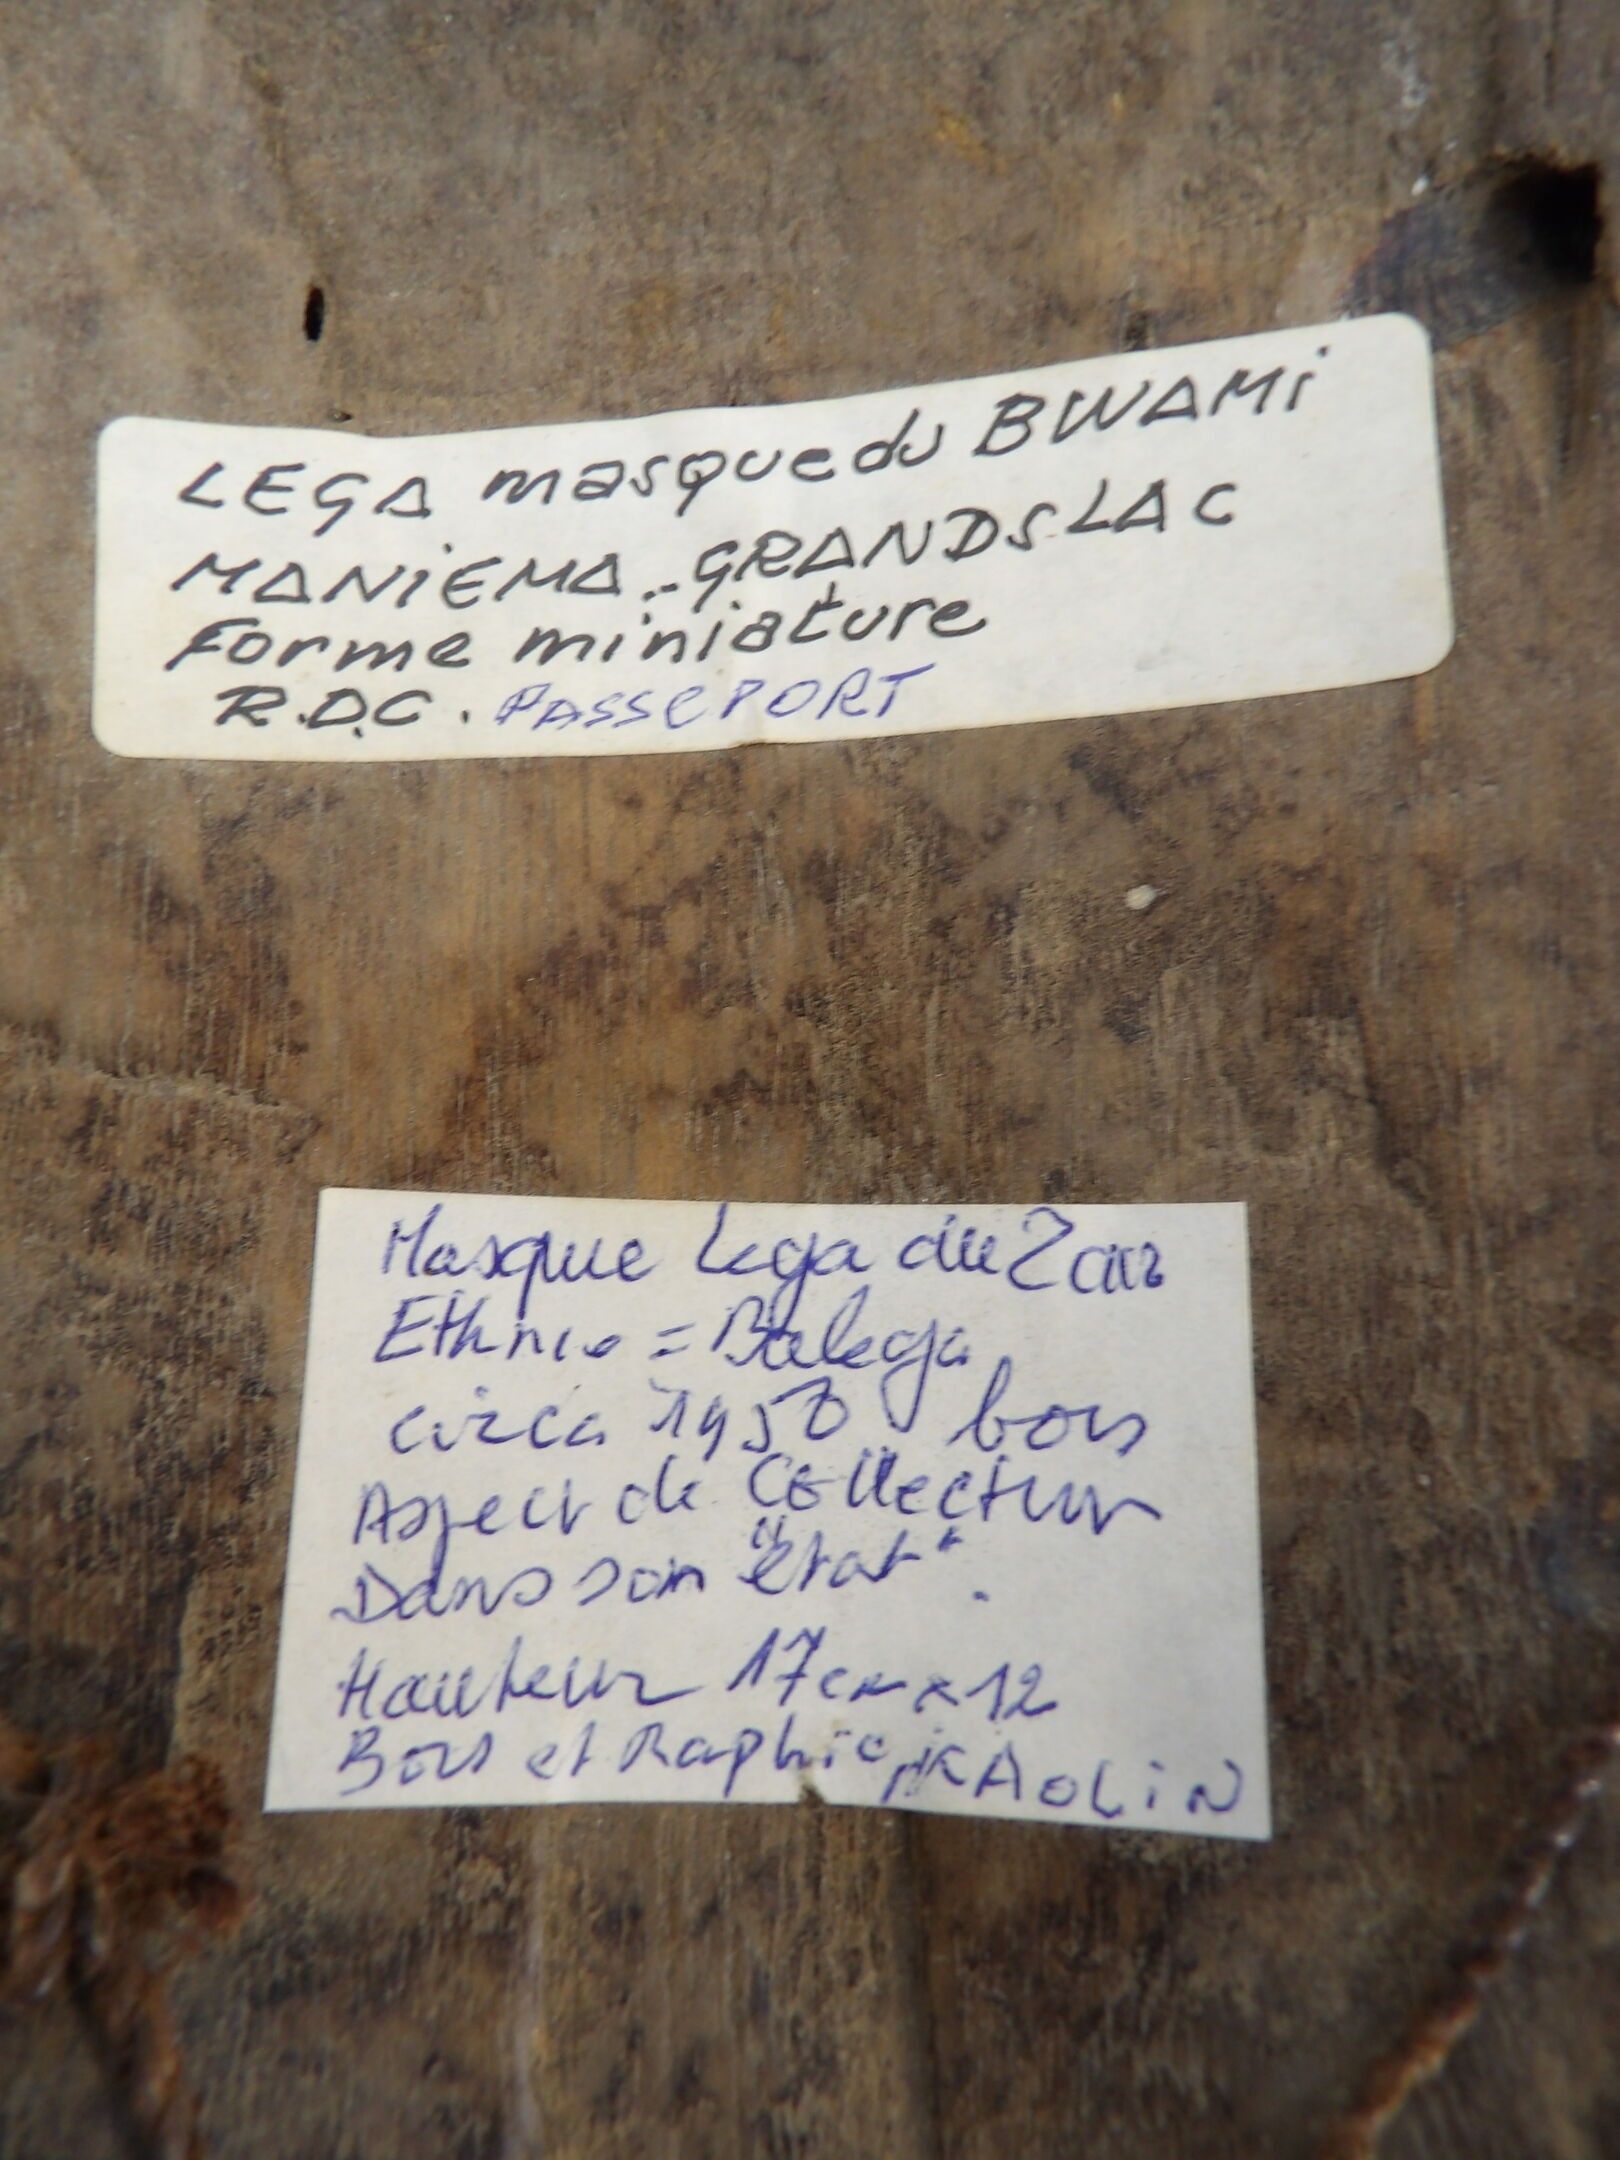 LEGA masque du BWAMi
MANiEMA..GRANDS LAC
Forme miniature
R.D.C. PASSEPORT
Masque Lega du Zair
Ethnie = Balega
circa 1950 bois
Aspect de Collection
Dans son "état".
Hauteur 17cm x 12
Bois et Raphia, KAOLiN